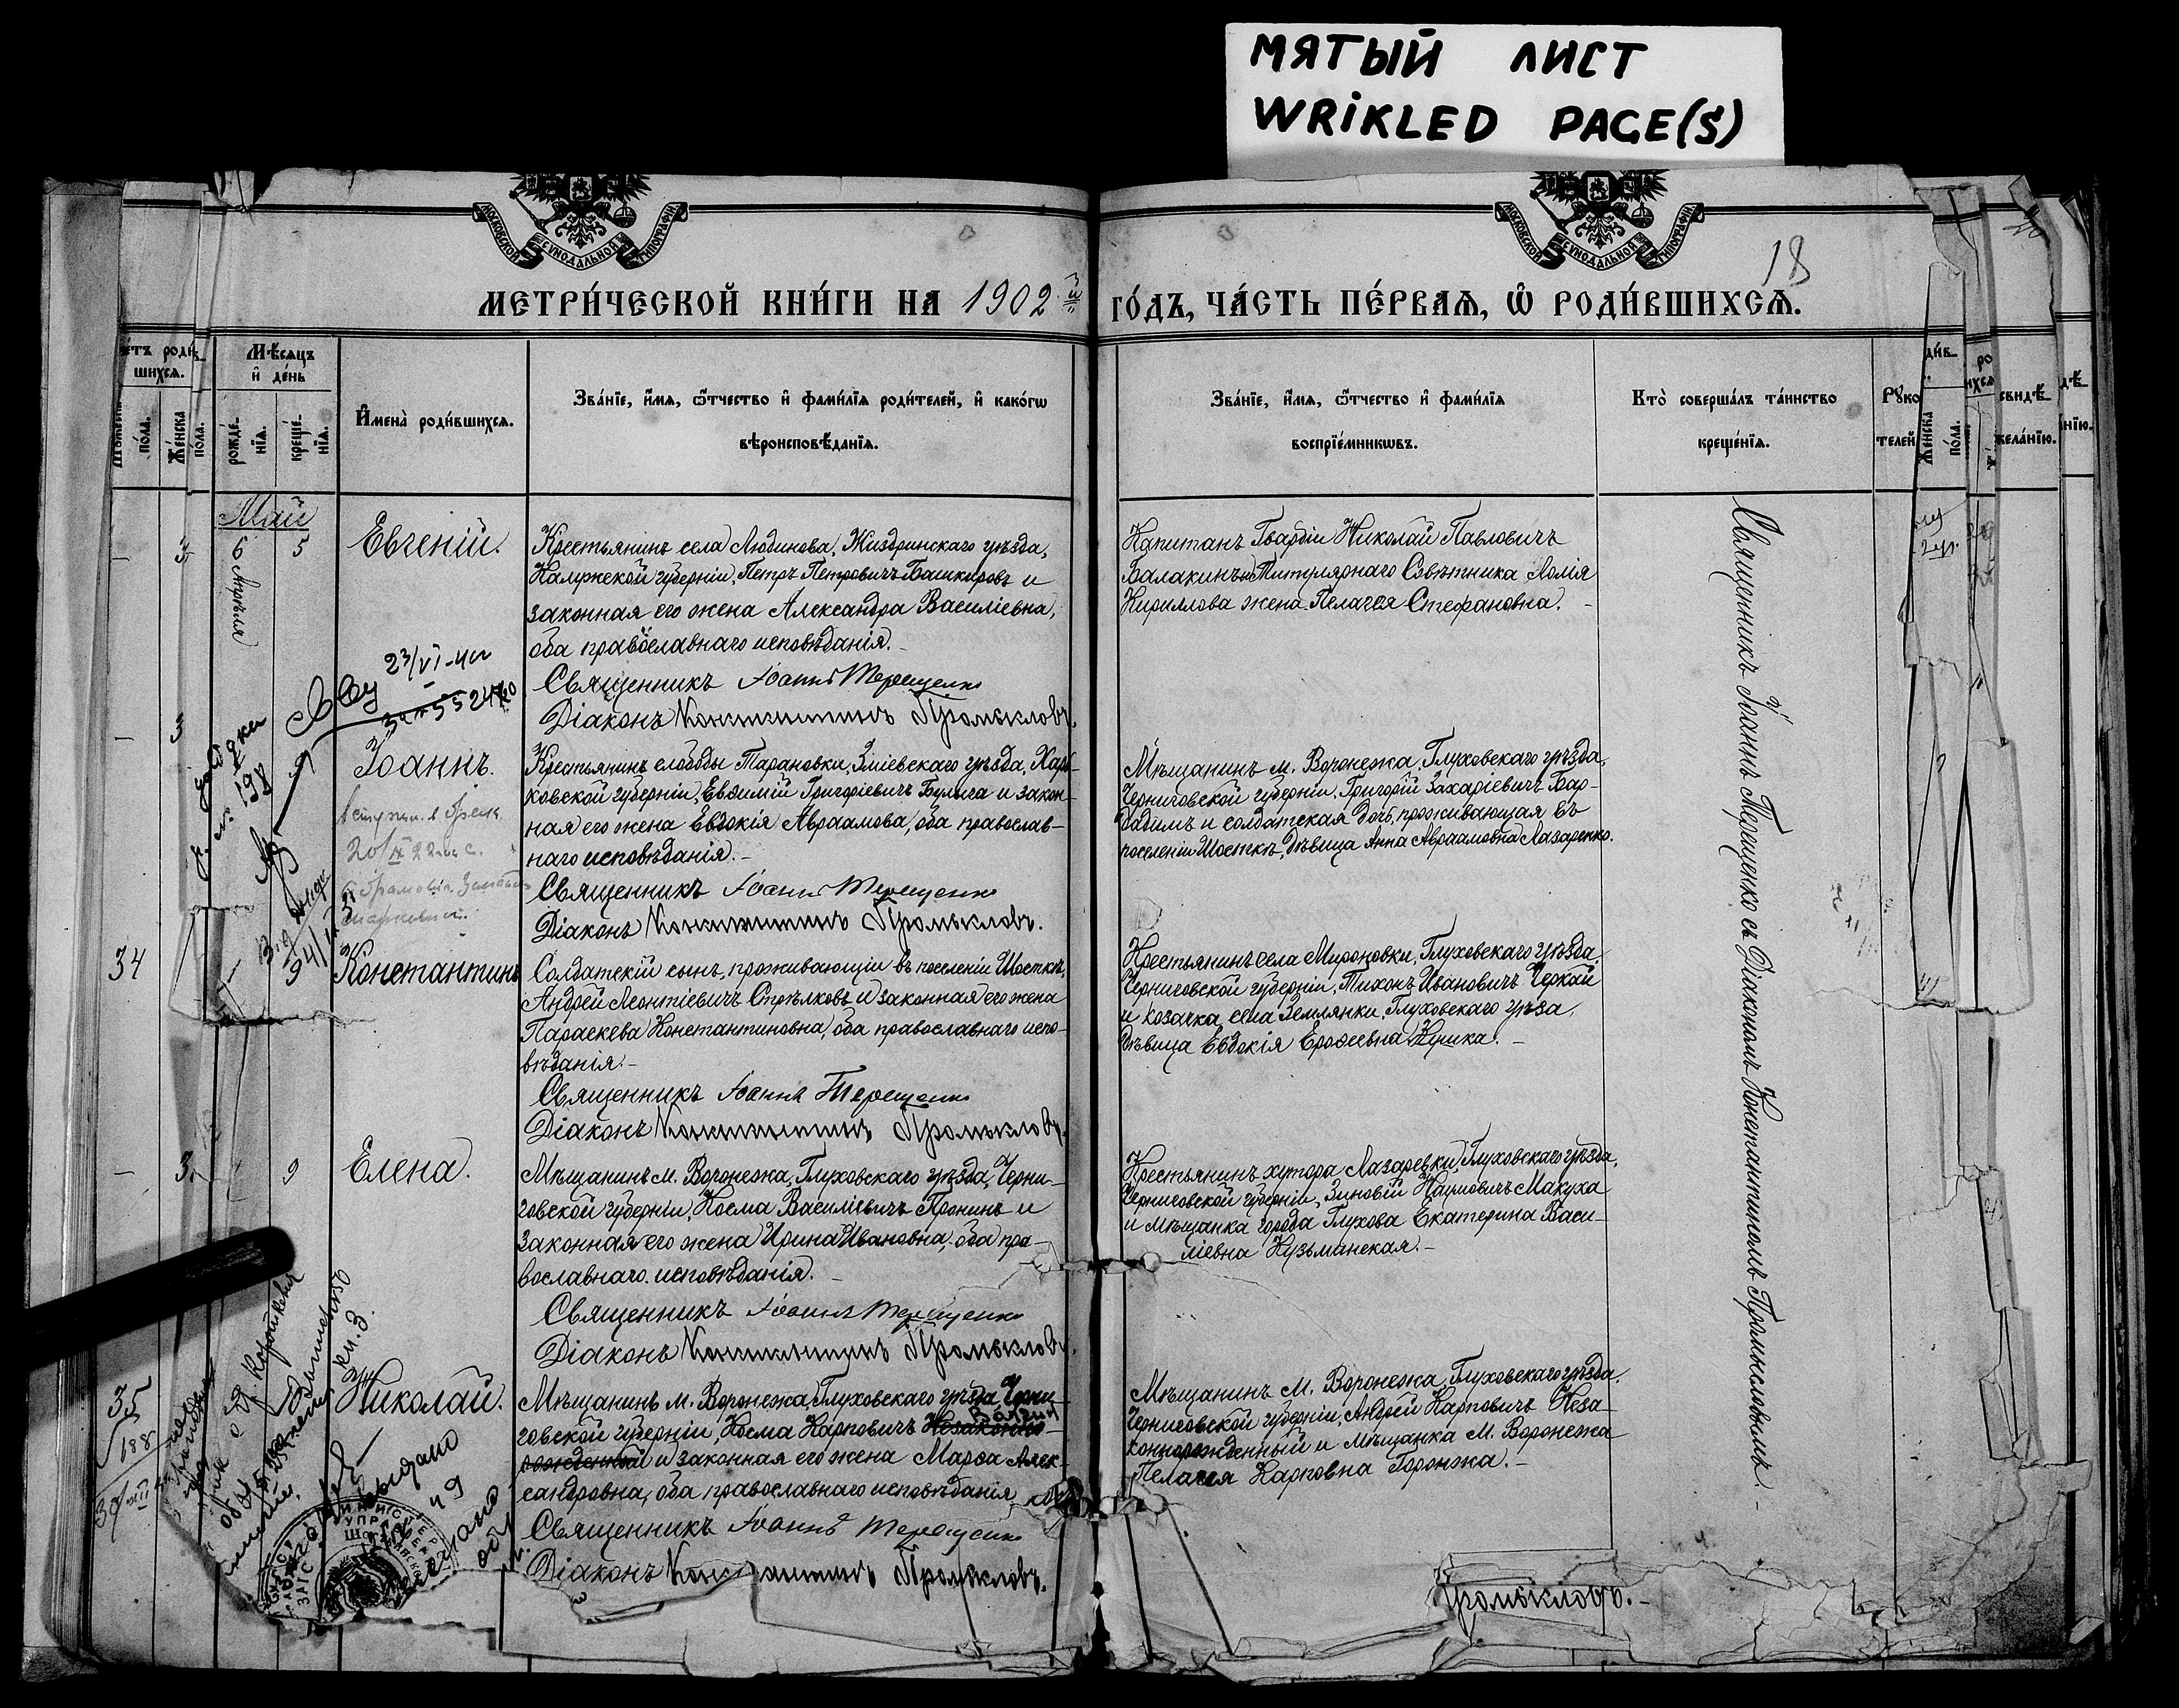 МЯТЫЙ ЛИСТ
WRIKLED PAGE(S)
МОСКОВСКОЙ СѴНОДАЛЬНОЙ ТИПОГРАФІИ
МОСКОВСКОЙ СѴНОДАЛЬНОЙ ТИПОГРАФІИ
18
МЕТРИ́ЧЕСКОЙ КНИ́ГИ НА 1902й ГО́ДЪ, ЧА́СТЬ ПЕ́РВАѦ, Ѿ РОДИ́ВШИХСѦ.
Мѣ́сѧцъ
и҆ де́нь
рожде́нїѧ.
креще́нїѧ.
Же́нска по́ла.
И҆мена̀ роди́вшихсѧ.
Зва́нїе, и҆́мѧ, ѻ҆́тчество и҆ фами́лїѧ роди́телей, и҆ како́гѡ
вѣроисповѣ́данїѧ.
Зва́нїе, и҆́мѧ, ѻ҆́тчество и҆ фами́лїѧ
воспрїе́мникѡвъ.
Кто̀ соверша́лъ та́инство
креще́нїѧ.
Май
6 Апрѣля
5
Евгеній.
Крестьянинъ села Людинова, Жиздринскаго уѣзда,
Калужской губерніи, Петръ Петровичъ Башкировъ и
законная его жена Александра Василіевна,
оба православнаго исповѣданія.
Священникъ Іоаннъ Терещенко
Діаконъ Константинъ Промысловъ.
Капитанъ Гвардіи Николай Павловичъ
Балакинъ и Титулярнаго Совѣтника
Кириллова жена Пелагея Стефановна.
23/VI-
3
Іоаннъ.
Крестьянинъ слободы Тарановки, Зміевскаго уѣзда, Харь-
ковской губерніи, Евѳимій Григоріевичъ Булыга и закон-
ная его жена Евдокія Авраамова, оба православ-
наго исповѣданія.
Священникъ Іоаннъ Терещенко
Діаконъ Константинъ Промысловъ.
Мѣщанинъ м. Воронежа, Глуховскаго уѣзда,
Черниговской губерніи, Григорій Захаріевичъ Бар-
и солдатская дочь, проживающая въ
поселеніи Шосткѣ, дѣвица Анна Авраамовна Лазаренко.
34
Константинъ
Солдатскій сынъ, проживающій въ поселеніи Шосткѣ,
Андрей Леонтіевичъ Стрѣлковъ и законная его жена
Параскева Константиновна, оба православнаго испо-
вѣданія.
Священникъ Іоаннъ Терещенко
Діаконъ Константинъ Промысловъ.
Крестьянинъ села Мироновки, Глуховскаго уѣзда,
Черниговской губерніи, Тихонъ Ивановичъ Черкай
и козачка села Землянки, Глуховскаго уѣзда,
дѣвица Евдокія Ерофеевна
9
Елена.
Мѣщанинъ м. Воронежа, Глуховскаго уѣзда, Черни-
говской губерніи, Косма Василіевичъ Пронинъ и
законная его жена Ирина Ивановна, оба пра-
вославнаго исповѣданія.
Священникъ Іоаннъ Терещенко
Діаконъ Константинъ Промысловъ.
Крестьянинъ хутора Лазаревки, Глуховскаго уѣзда,
Черниговской губерніи, Зиновій Наумовичъ Макуха
и мѣщанка города Глухова Екатерина Васи-
ліевна Кузьминская.
35
Николай.
Мѣщанинъ м. Воронежа, Глуховскаго уѣзда, Черни-
говской губерніи, Косма Карповичъ Незаконно-
рожденный и законная его жена Марѳа Алек-
сандровна, оба православнаго исповѣданія
Священникъ Іоаннъ Терещенко
Діаконъ Константинъ Промысловъ.
Мѣщанинъ м. Воронежа, Глуховскаго уѣзда,
Черниговской губерніи, Андрей Карповичъ Неза-
коннорожденный и мѣщанка м. Воронежа
Пелагея Карповна
Священникъ Іоаннъ Терещенко съ Діакономъ Константиномъ Промысловымъ.
Промысловъ.